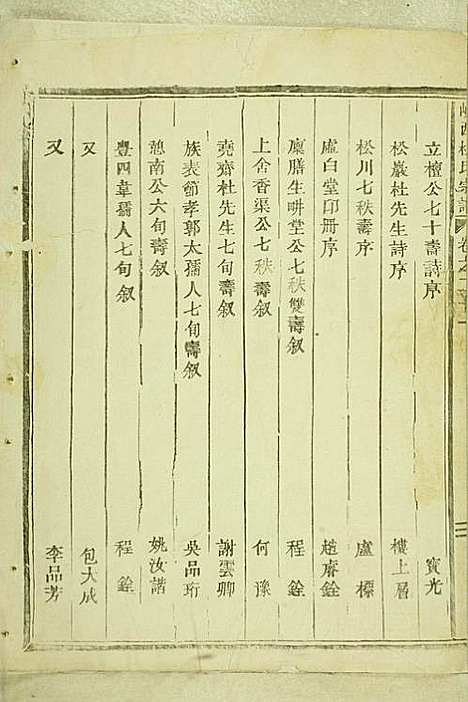 立檀公七十壽詩序 寳光
松巖杜先生詩序 樓上層
松川七秩壽序 盧標
虛白堂印冊序 趙睿銓
廩膳生畊堂公七秩雙壽叙 程銓
上舍香渠公七秩壽叙 何豫
堯齋杜先生七旬壽叙 謝雲卿
族表節孝郭太孺人七旬壽叙 吳品珩
憩南公六旬壽叙 姚汝諧
豐四韋孺人七旬叙 程銓
又 包大成
又 李品芳